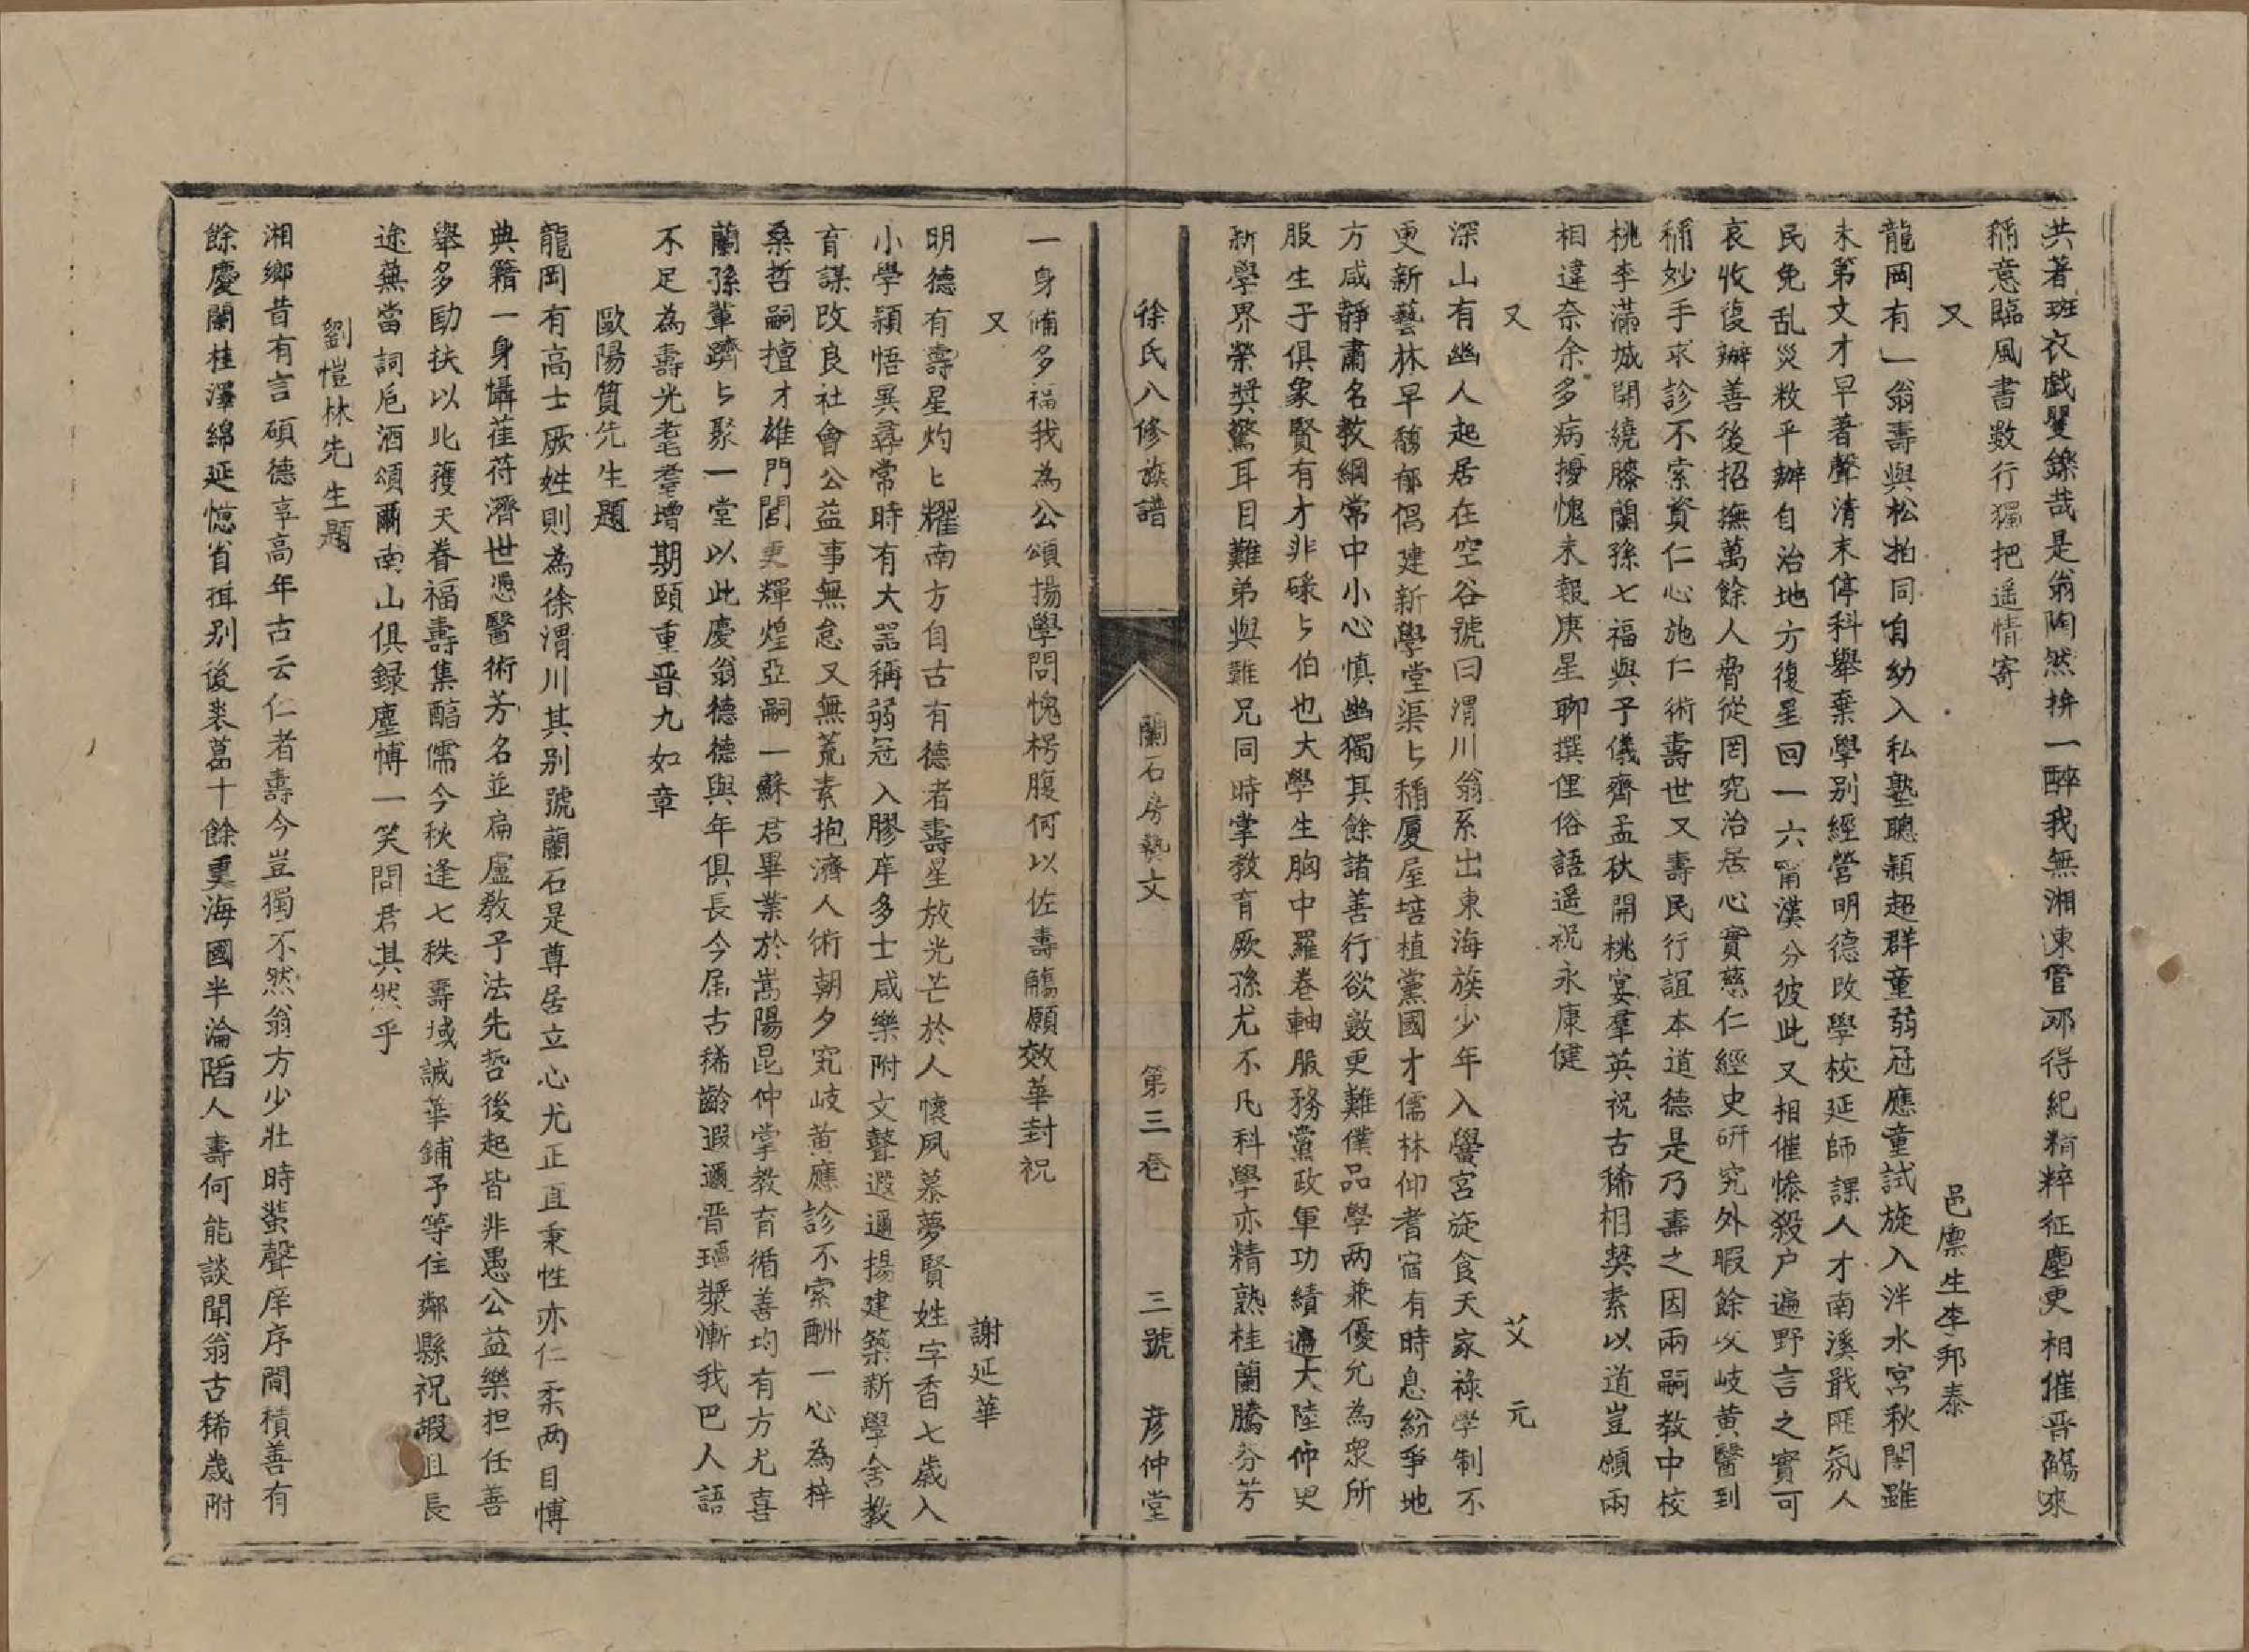 共著斑衣戲矍鑠哉是翁陶然拚一醉我無湘東管那得紀精粹征塵更相催晉觴來
稱意臨風書数行獨把遥情寄
又　邑廪生李邦泰
龍岡有一翁壽與松柏同自幼入私塾聰穎超群童弱冠應童試旋入泮水宮秋闈雖
未第文才早著聲清末停科舉棄學别經營明德改學校延師課人才南溪戢匪氛人
民免乱災敉平辦自治地方復星回一六甯漢分彼此又相催惨殺户遍野言之實可
哀收復辦善後招撫萬餘人脅從罔究治居心實慈仁經史研究外暇餘攻岐黄醫到
稱妙手求診不索資仁心施仁術壽世又壽民行誼本道德是乃壽之因兩嗣教中校
桃李滿城開繞膝蘭孫七福與子儀齊孟秋開桃宴羣英祝古稀相契素以道豈願兩
相違奈余多病擾愧未報庚星聊撰俚俗語遥祝永康健
又　艾　元
深山有幽人起居在空谷號曰渭川翁系出東海族少年入黌宮旋食天家祿學制不
更新藝林早馥郁倡建新學堂渠与稱厦屋培植黨國才儒林仰耆宿有時息紛爭地
方咸靜肅名教綱常中小心慎幽獨其餘諸善行欲數更難僕品學两兼優允為衆所
服生子俱象賢有才非碌与伯也大學生胸中羅卷軸服務黨政軍功績遍大陸仲史
新學界榮獎驚耳目難弟與難兄同時掌教育厥孫尤不凡科學亦精熟桂蘭騰芬芳
徐氏八修族譜　蘭石房藝文　第三卷　三號　彦仲堂
一身備多福我為公頌揚學問愧枵腹何以佐壽觴願效華封祝
又　謝延華
明德有壽星灼匕耀南方自古有德者壽星放光芒於人懷夙慕夢賢姓字香七歲入
小學穎悟異尋常時有大器稱弱冠入膠庠多士咸樂附文聲遐邇揚建築新學舍教
育謀改良社會公益事無怠又無荒素抱濟人術朝夕究岐黄應診不索酬一心為梓
桑哲嗣擅才雄門閭更輝煌亞嗣一蘇君畢業於嵩陽昆仲掌教育循善均有方尤喜
蘭孫輩躋与聚一堂以此慶翁德德與年俱長今届古稀齡遐邇晋瓊漿慚我巴人語
不足為壽光耄耋增期頤重晋九如章
歐陽質先生題
龍岡有高士厥姓則為徐渭川其别號蘭石是尊居立心尤正直秉性亦仁柔两目博
典籍一身懾萑苻濟世憑醫術芳名並扁盧教子法先哲後起皆非愚公益樂担任善
舉多勸扶以此蒦天眷福壽集醕儒今秋逢七秩壽域誠華鋪予等住鄰縣祝嘏且長
途蕪當詞巵酒頌爾南山俱録塵博一笑問君其然乎
劉愷林先生題
湘鄉昔有言碩德享高年古云仁者壽今豈獨不然翁方少壯時蜚聲庠序間積善有
餘慶蘭桂澤綿延憶省珥别後裘葛十餘更海國半淪陷人壽何能談聞翁古稀歲附